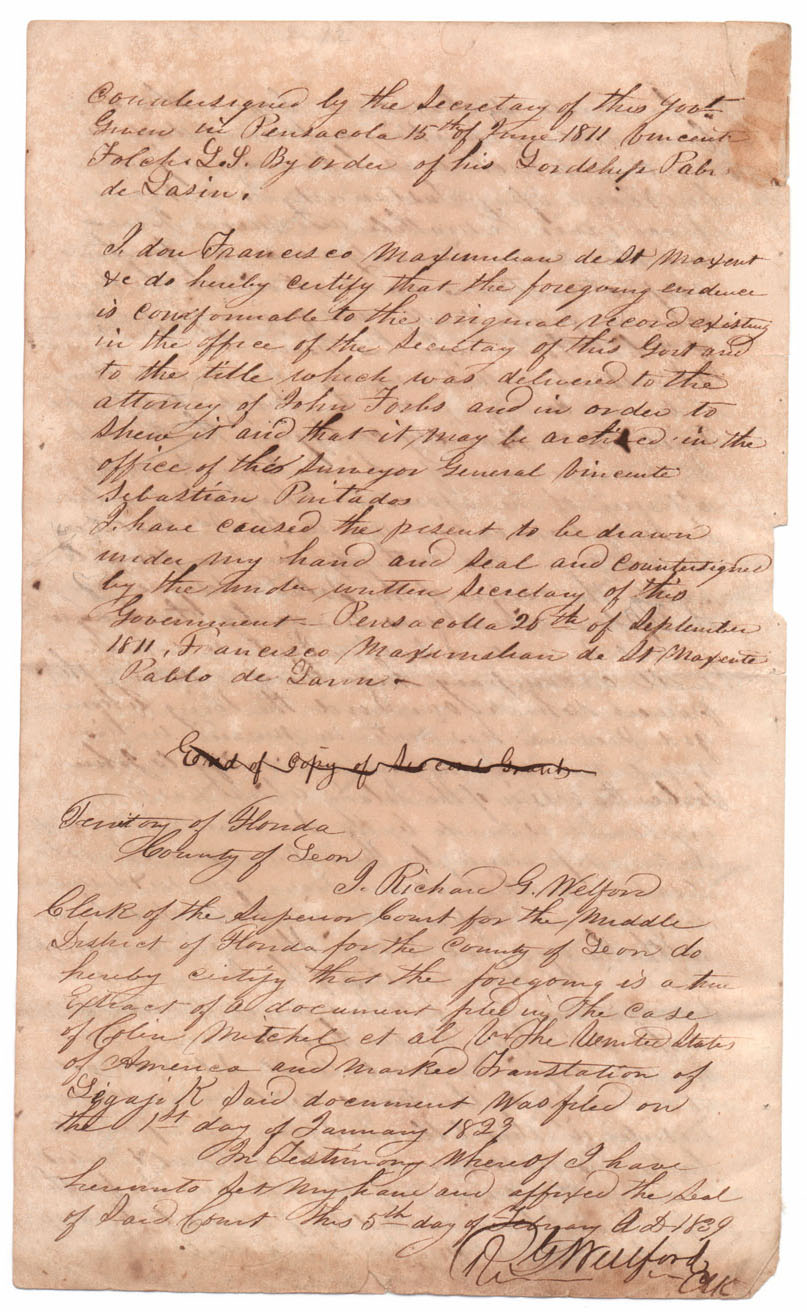 Countersigned by the Secretary of this Govt
Given in Pensacola 15th of June 1811 Vincent
Folch L.S. By order of his Lordship Pabl
de Lasin.
I don Francisco Maximilian de St Maxent
&c do hereby certify that the foregoing evidence
is conformable to the original record existing
in the office of the Secretay of this Govt and
to the title which was delivered to the
attorney of John Forbs and in order to
shew it and that it may be archived in the
office of this Surveyor General Vincente
Sebastian Pintados
I have caused the present to be drawn
under my hand and seal and Countersigned
by the under written Secretary of this
Government - Pensacolla 20th of September
1811. Francisco Maximilian de St Maxente
Pablo de Larin -
End of Copy of Second Grant
Territory of Florida
County of Leon
I. Richard G. Welford
Clerk of the Superior Court for the Middle
District of Florida for the County of Leon do
hereby certify that the foregoing is a true
Extract of a document filed in the case
of Colin Mitchel et al Vs The United States
of America and marked Translation of
K Said document was filed on
the 1st day of January 1829
In Testimony Whereof I have
hereunto set my hand and affixed the seal
of said Court this 5th day of A D 1839
R. G Wellford Clk